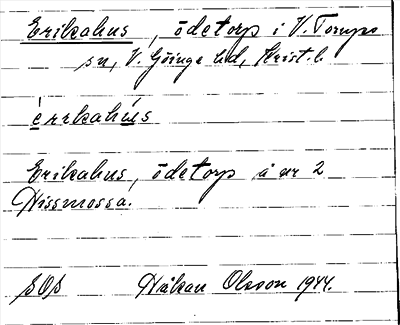 Erikahus, ödetorp i V. Torups
sn, V. Göinge hd, Krist. l.
èrrkahús
Erikahus, ödetorp å nr 2
Hissmossa.
SOS Håkan Olsson 1944.